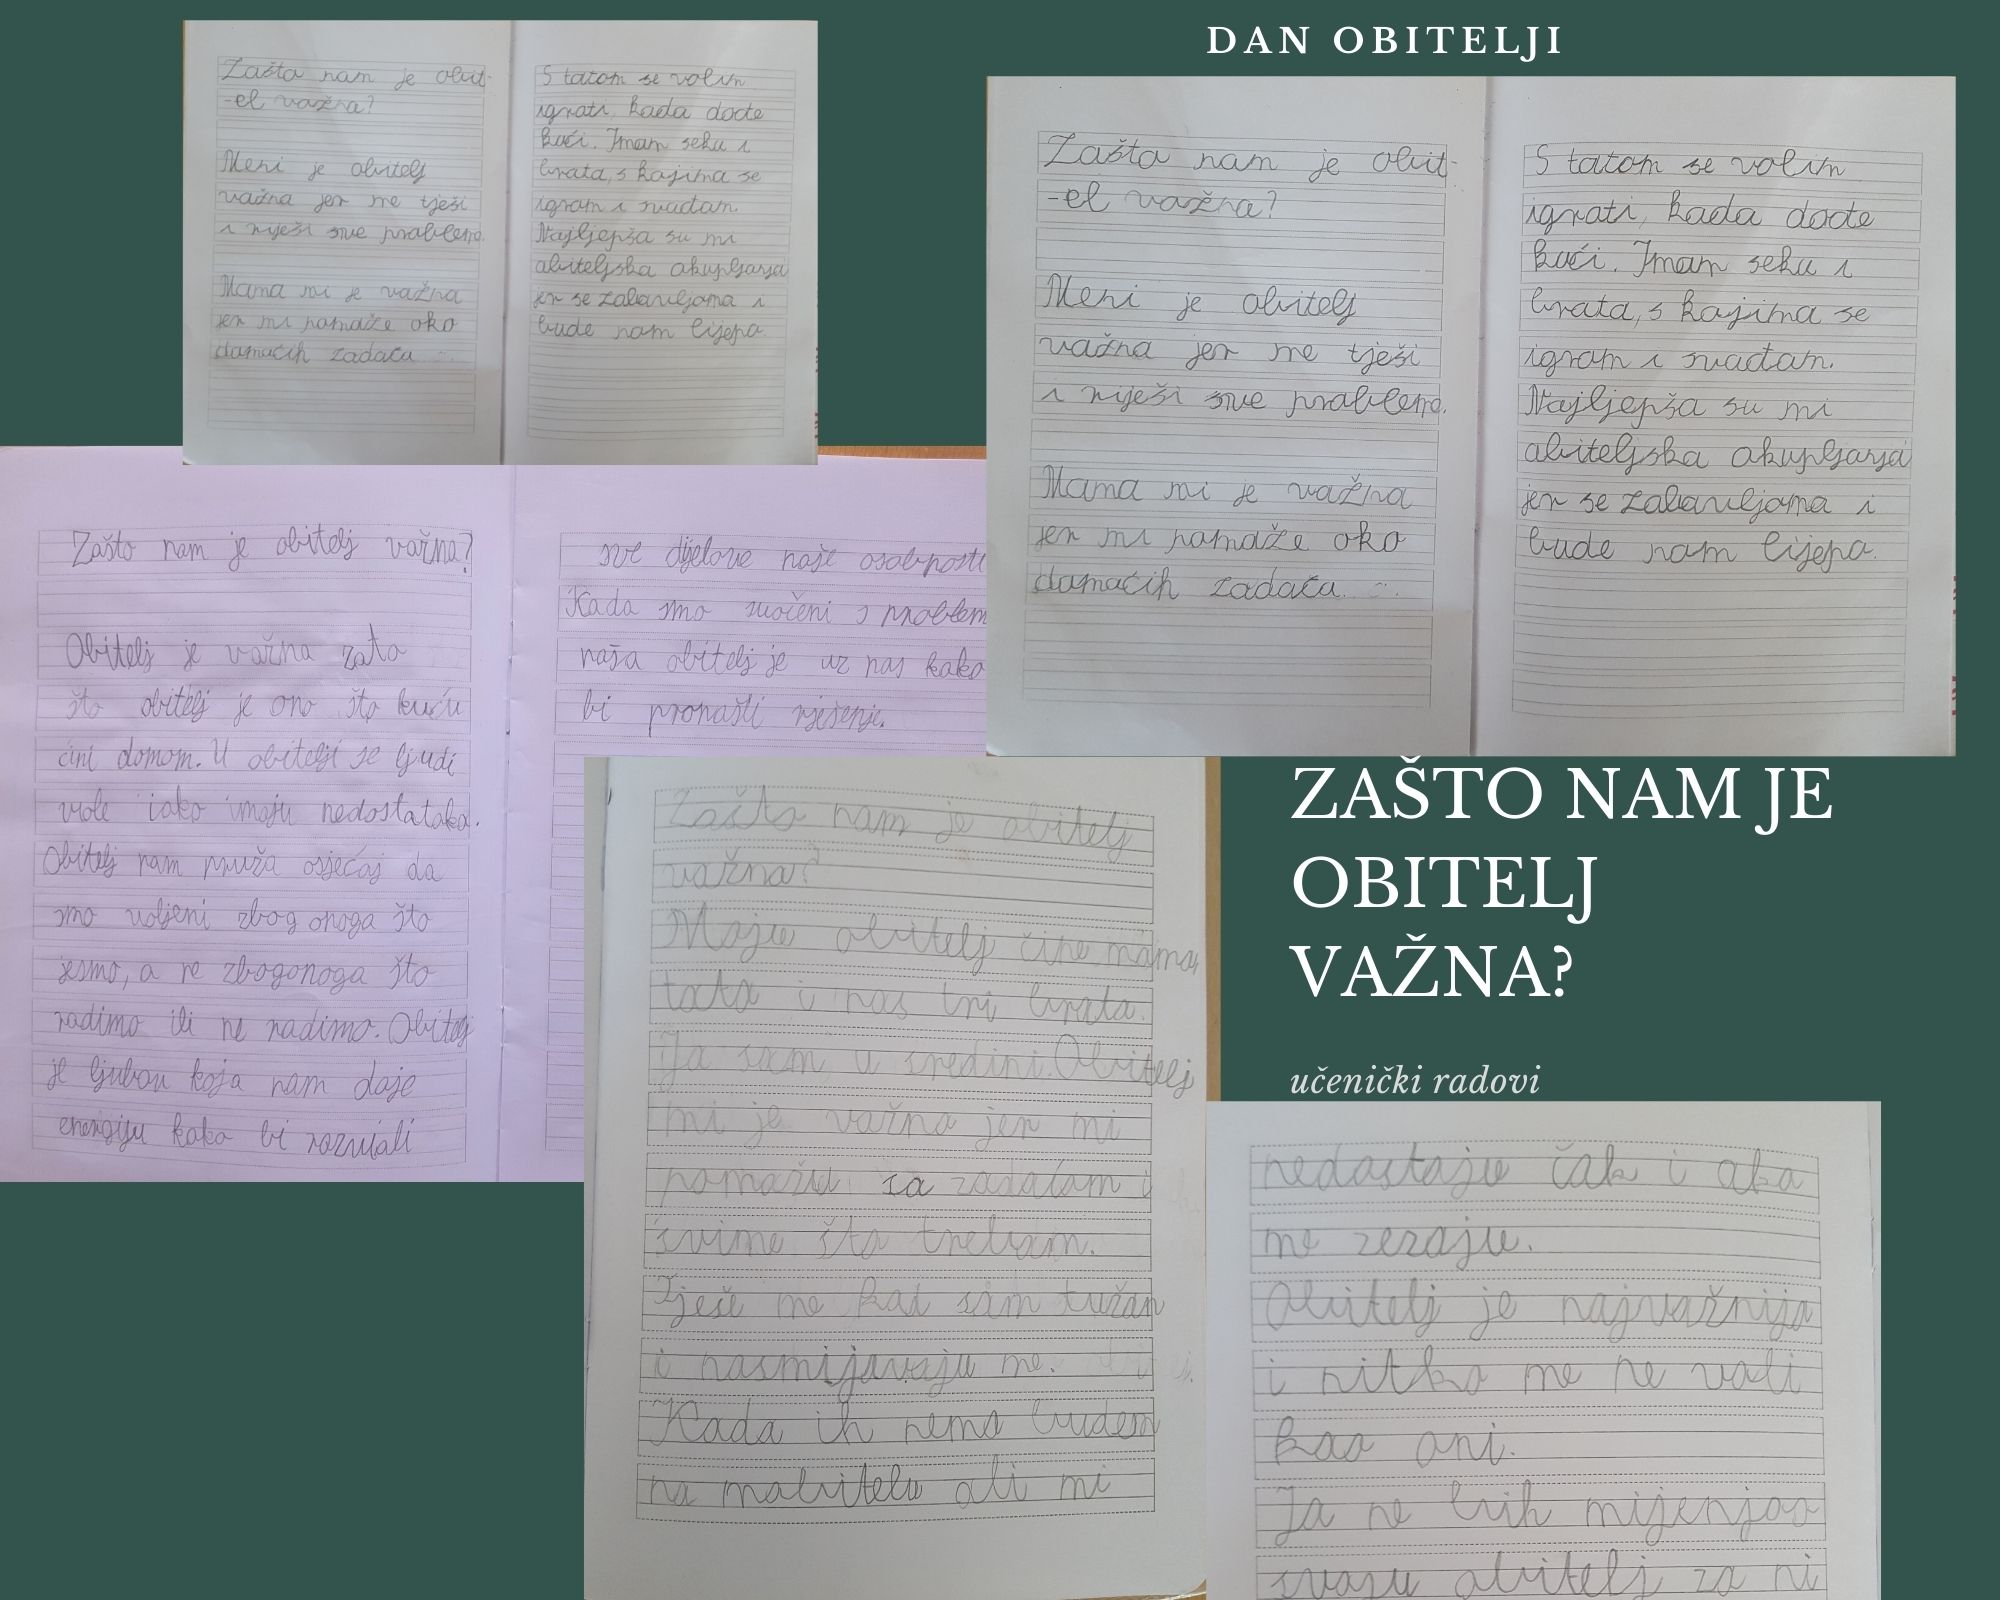 DAN OBITELJI
Zašto nam je obit-
-el važna?
Meni je obitelj
važna jer me tješi
i riješi sve probleme.
Mama mi je važna
jer mi pomaže oko
domaćih zadaća
S tatom se volim
igrati, kada dođe
kući. Imam seku i
brata, s kojima se
igram i svađam.
Najljepša su mi
obiteljska okupljanja
jer se zabavljamo i
bude nam lijepo.
Zašto nam je obit-
-el važna?
Meni je obitelj
važna jer me tješi
i riješi sve probleme.
Mama mi je važna
jer mi pomaže oko
domaćih zadaća.
S tatom se volim
igrati, kada dođe
kući. Imam seku i
brata, s kojima se
igram i svađam.
Najljepša su mi
obiteljska okupljanja
jer se zabavljamo i
bude nam lijepo.
Zašto nam je obitelj važna?
Obitelj je važna zato
što obitelj je ono što kuću
čini domom. U obitelji se ljudi
vole iako imaju nedostataka.
Obitelj nam pruža osjećaj da
smo voljeni zbog onoga što
jesmo, a ne zbog onoga što
radimo ili ne radimo. Obitelj
je ljubav koja nam daje
energiju kako bi razvijali
sve dijelove naše osobnosti
Kada smo suočeni s problem
naša obitelj je uz nas kako
bi pronašli rješenje.
ZAŠTO NAM JE
OBITELJ
VAŽNA?
učenički radovi
Zašto nam je obitelj
važna?
Moju obitelj čine mama,
tata i nas tri brata.
Ja sam u sredini. Obitelj
mi je važna jer mi
pomažu sa zadaćam i
svime što trebam.
Tješe me kad sam tužan
i nasmijavaju me.
Kada ih nema budem
na mobitelu ali mi
nedostaju čak i ako
me zezaju.
Obitelj je najvažnija
i nitko me ne voli
kao oni.
Ja ne bih mijenjao
svoju obitelj za ni